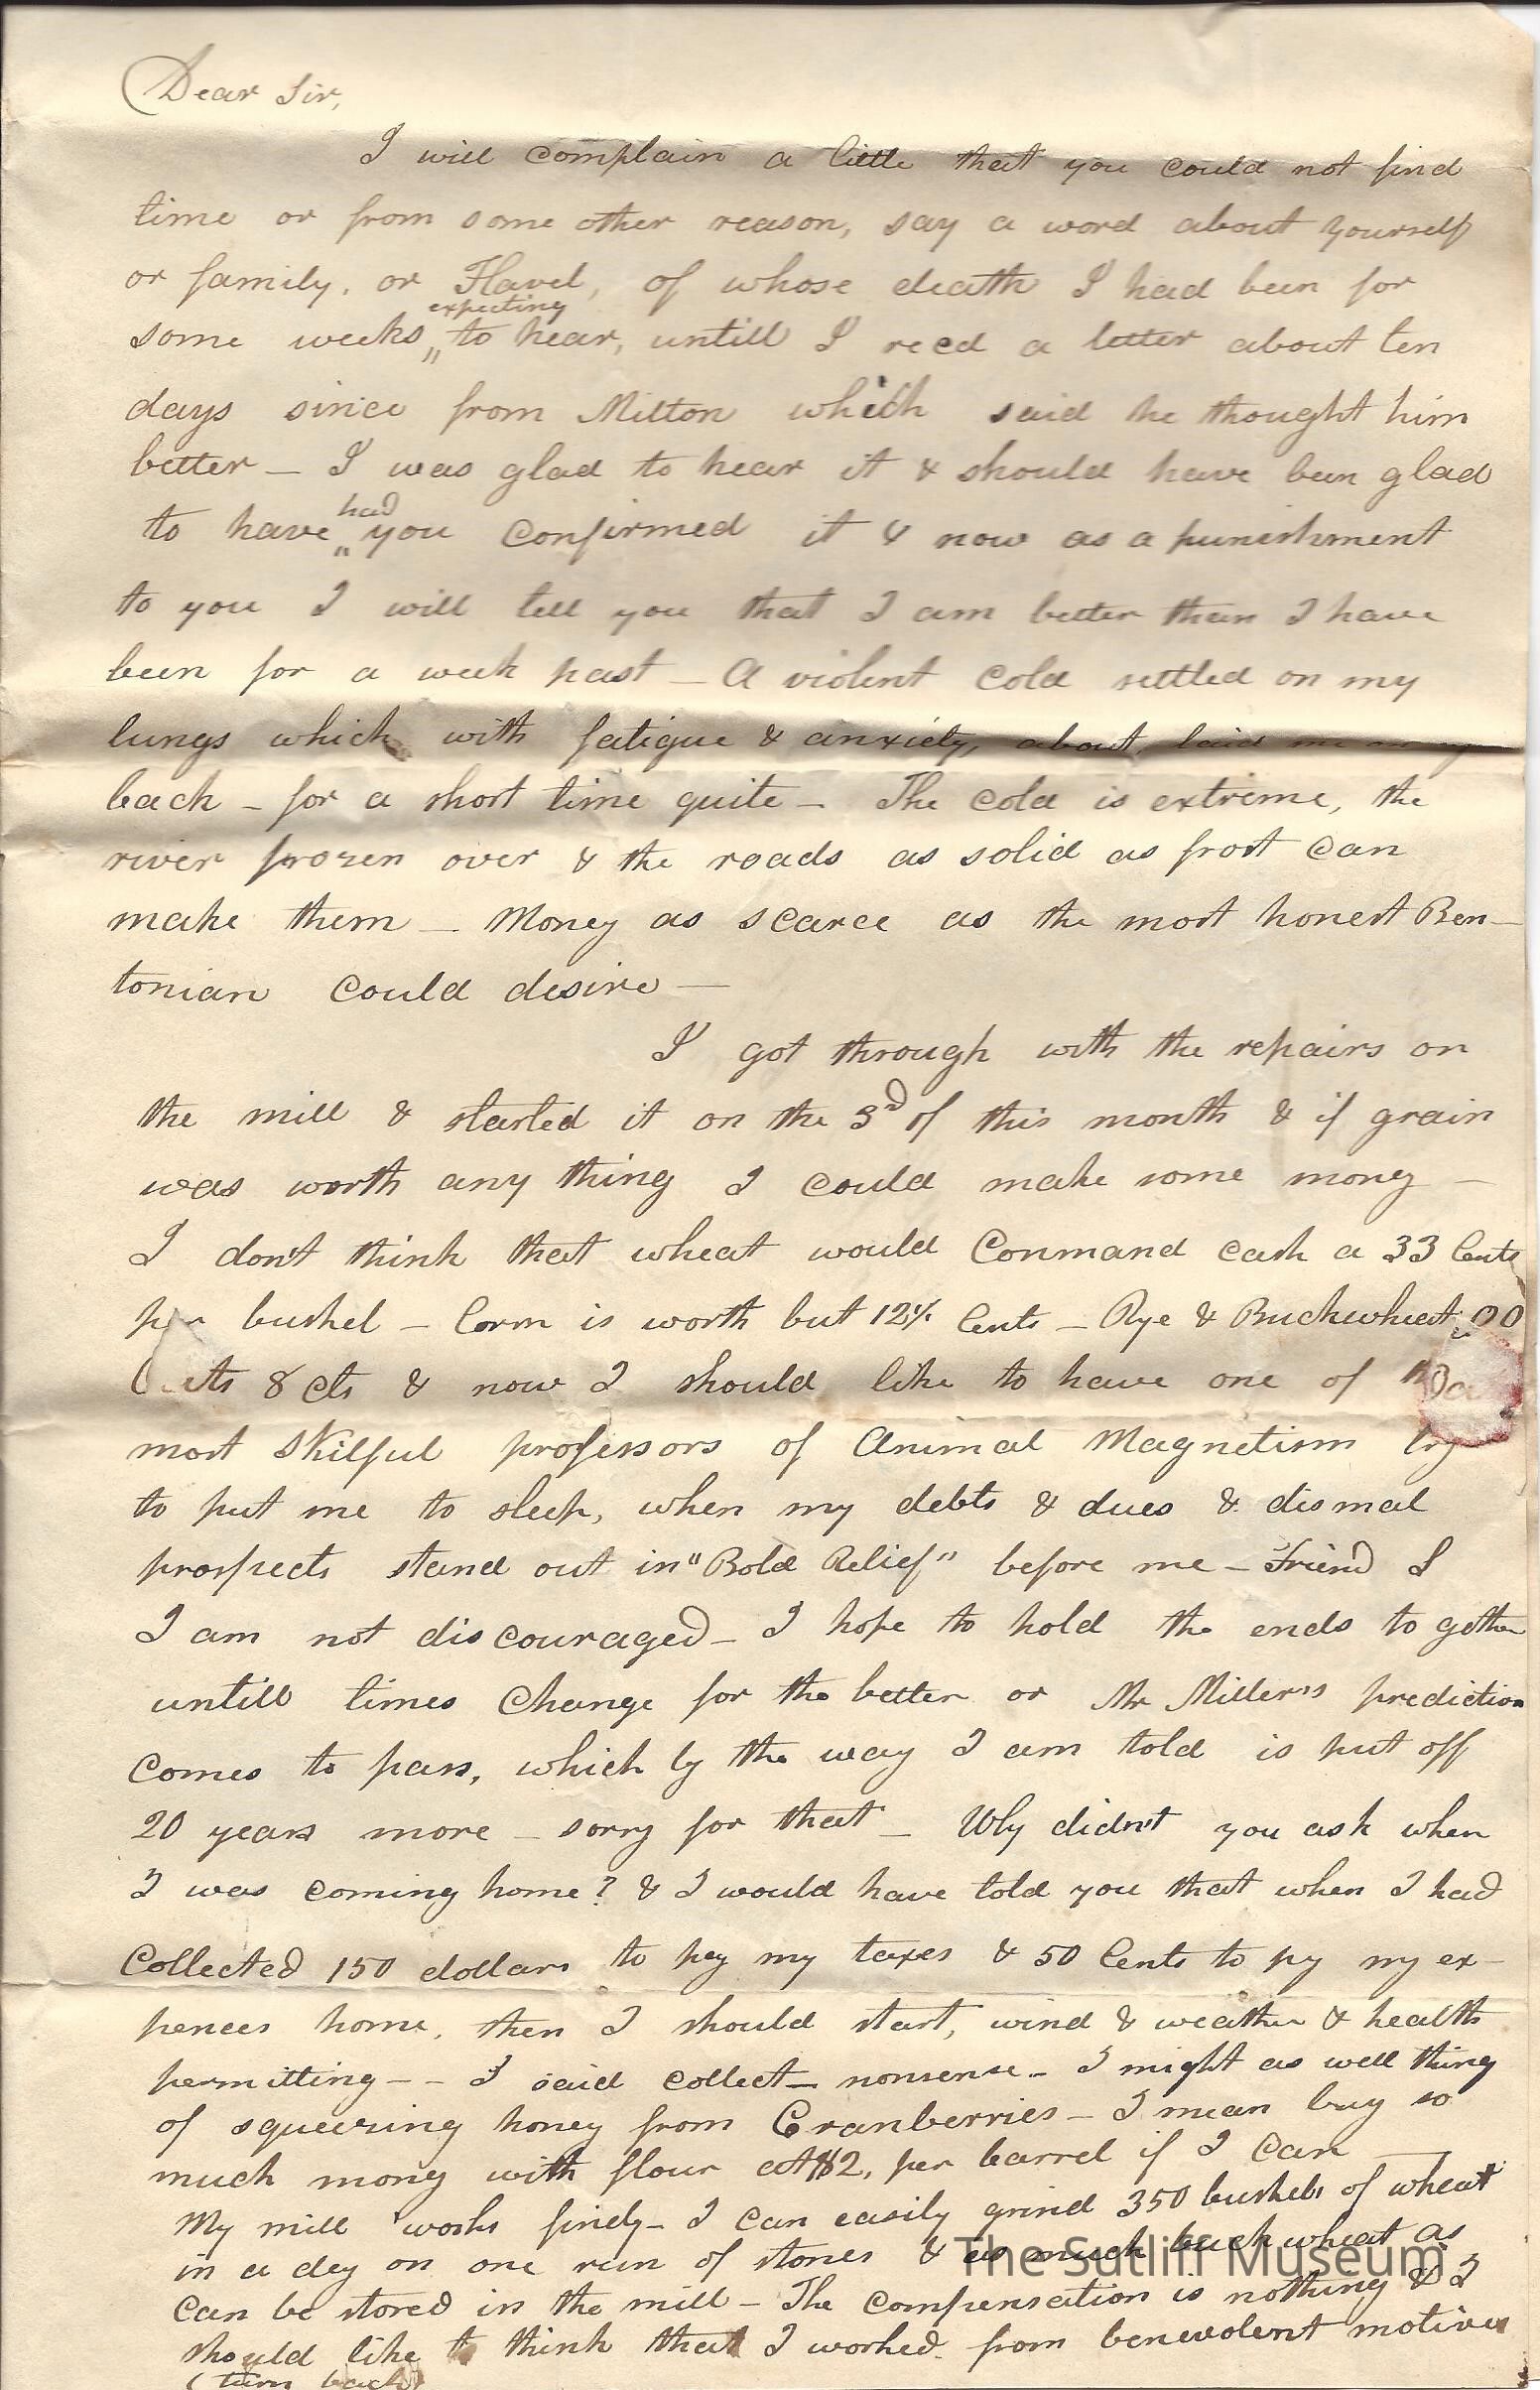 Dear Sir,
I will complain a little that you could not find
time or from some other reason, say a word about yourself
or family, or Flavel, of whose death I had been for
expecting
some weeks to hear, untill I recd a letter about ten
days since from Milton which said he thought him
better — I was glad to hear it & should have been glad
had
to have you confirmed it & now as a punishment
to you I will tell you that I am better than I have
been for a week past — A violent cold settled on my
lungs which with fatigue & anxiety, about, laid me on my
back — for a short time quite — The cold is extreme, the
river frozen over & the roads as solid as frost can
make them — Money as scarce as the most honest Ben-
tonian could desire —
I got through with the repairs on
the mill & started it on the 3d of this month & if grain
was worth any thing I could make some mony —
I don't think that wheat would Conmand cash a 33 Cents
per bushel — Corn is worth but 12½ Cents — Rye & Buckwheat 00
Oats 8 cts & now I should like to have one of
most skilful professors of Animal Magnetism try
to put me to sleep, when my debts & dues & dismal
prospects stand out in "Bold Relief" before me — Friend S
I am not discouraged — I hope to hold the ends to gether
untill times change for the better or Mr Miller's prediction
comes to pass, which by the way I am told is put off
20 years more — sorry for that — Why didn't you ask when
I was coming home? & I would have told you that when I had
Collected 150 dollars to pay my taxes & 50 Cents to py my ex-
pences home, then I should start, wind & weather & health
permitting — — I said collect — nonsense — I might as well thing
of squeezing honey from Cranberries — I mean buy so
much mony with flour at $2, per barrel if I can —
My mill works finely — I can easily grind 350 bushels of wheat
in a day on one run of stones & as much buckwheat as
can be stored in the mill — The compensation is nothing & I
should like to think that I worked from benevolent motives
(turn back)
The Sutliff Museum